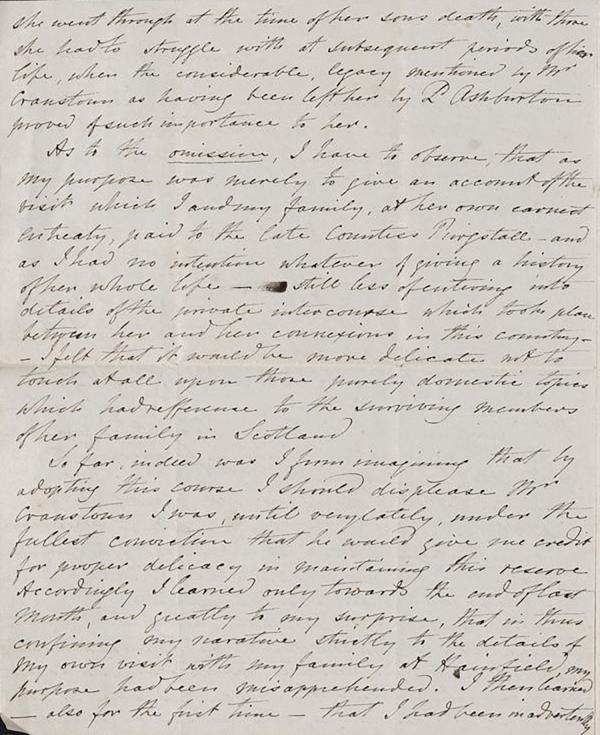 she went through at the time of her sons death, with those
she had to struggle with at subsequent periods of her
life, when the considerable, legacy mentioned by Mr
Cranstoun as having been left her by L Ashburton
proved of such importance to her.
As to the omission, I have to observe, that as
my purpose was merely to give an account of the
visit which I and my family, at her own earnest
entreaty, paid to the late Countess Purgstall - and
as I had no intention whatever of giving a history
of her whole life - still less of entering into
details of the private intercourse which took place
between her and her connexions in this country -
- I felt that it would be more delicate not to
touch at all upon those purely domestic topics
which had refference to the surviving members
of her family in Scotland
So far, indeed was I from imagining that by
adopting this course I should displease Mr
Cranstoun I was, until very lately, under the
fullest conviction that he would give me credit
for proper delicacy in maintaining this reserve
Accordingly I learned only towards the end of last
month, and greatly to my surprise, that in thus
confining my narative strictly to the details of
my own visit with my family at Hainfield, my
purpose had been misapprehended. I then learned
- also for the first time - that I had been inadvertently